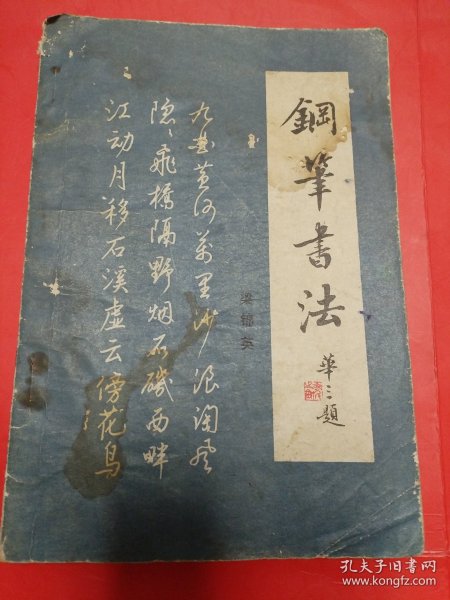 鋼筆書法
華三題
梁錦英
九曲黄河万里沙浪淘风
隐隐飛橋隔野烟石磯西畔
江动月移石溪虚云傍花鸟
孔夫子旧书网
www.kongfz.com